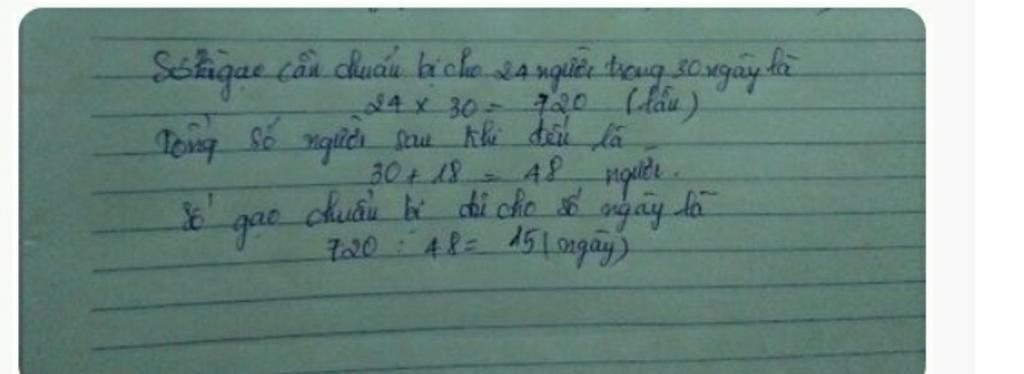 Số gạo cần chuẩn bị cho 24 người trong 30 ngày là
24 x 30 = 720 (lần)
Tổng số người sau khi đến là
30 + 18 = 48 người.
Số gạo chuẩn bị đủ cho số ngày là
720 : 48 = 15 (ngày)